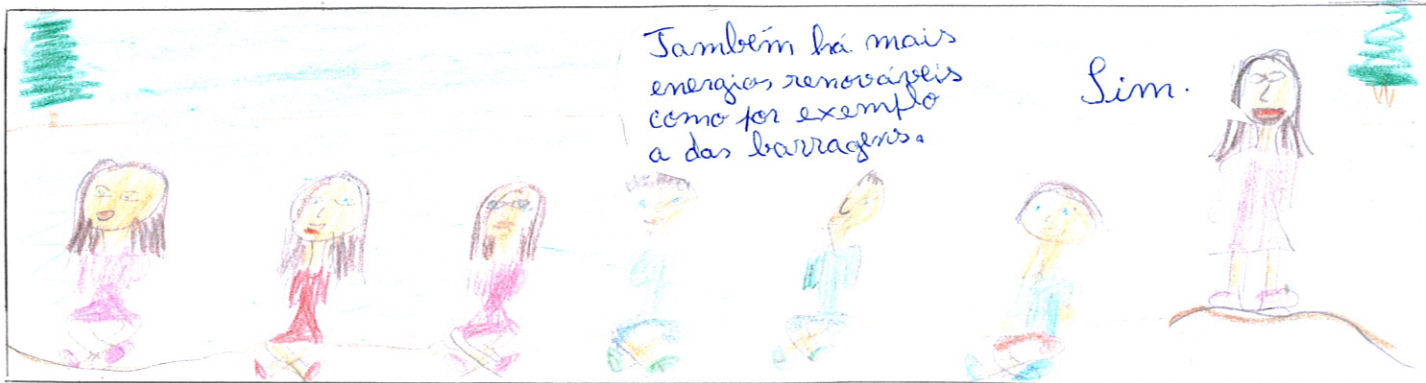 Também há mais
energias renováveis
como por exemplo
a das barragens.
Sim.